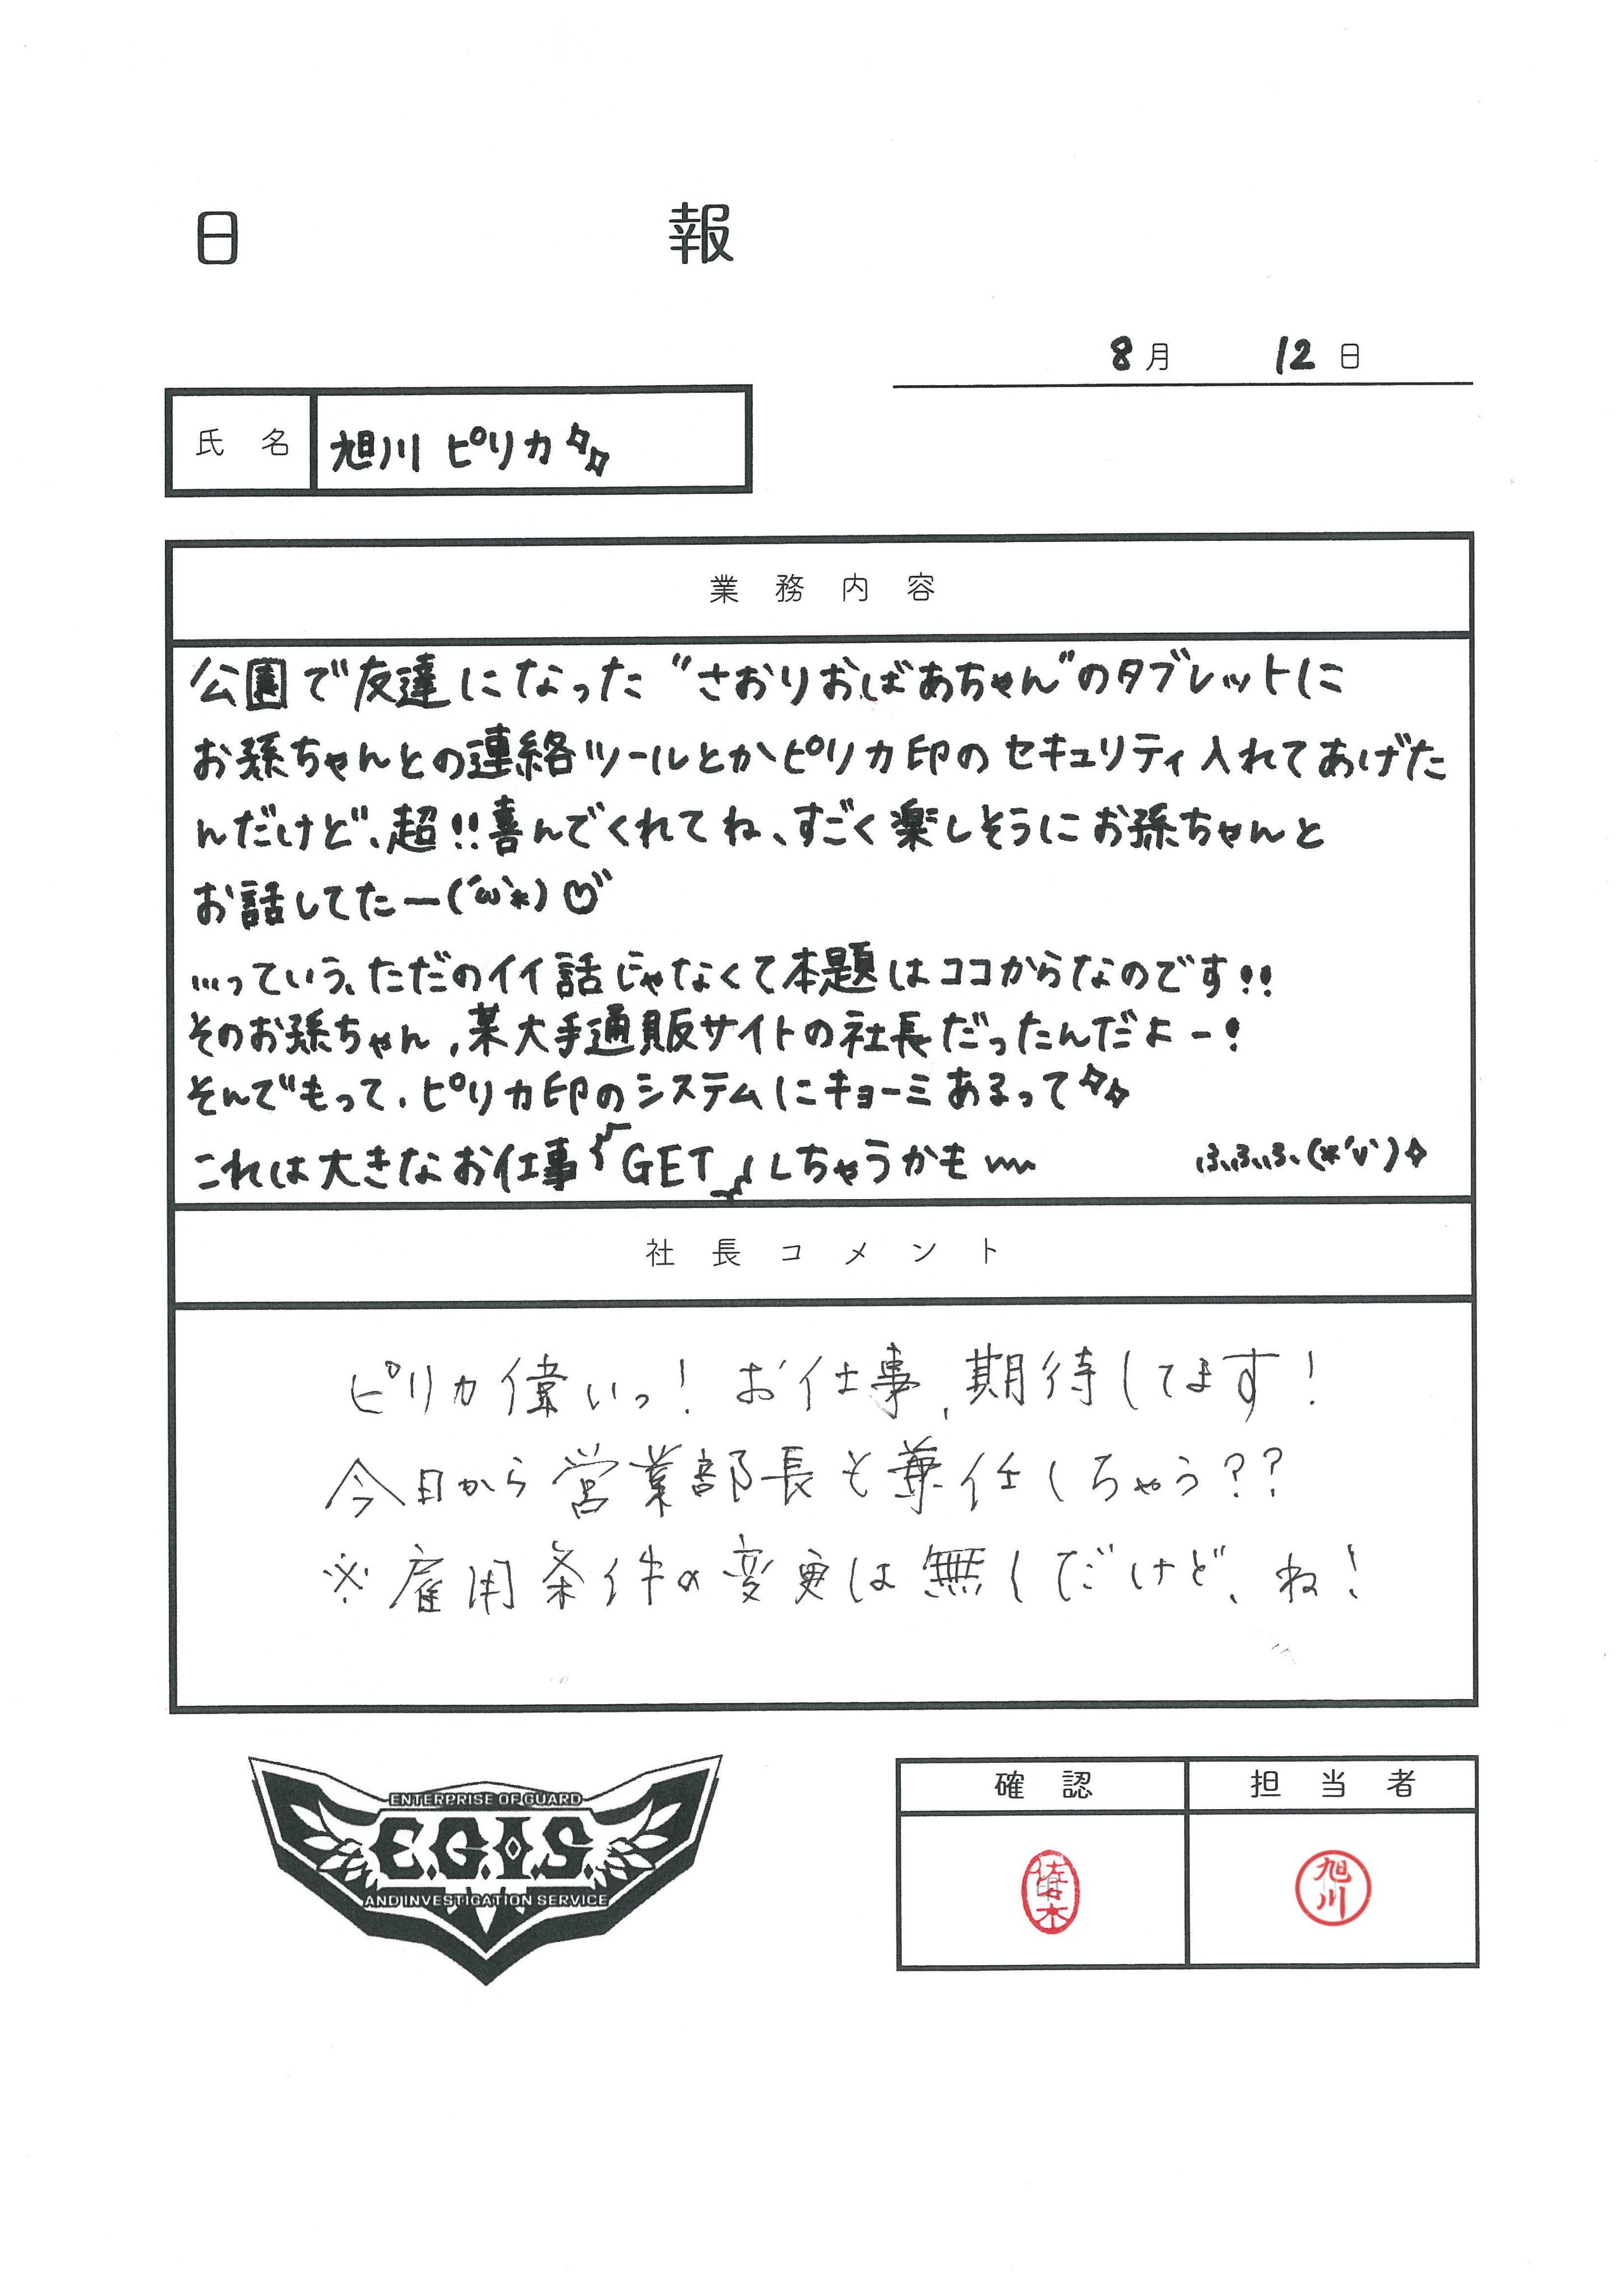 日報
8月 12日
氏名 旭川 ピリカ
業務内容
公園で友達になった"さおりおばあちゃん"のタブレットに
お孫ちゃんとの連絡ツールとかピリカ印のセキュリティ入れてあげた
んだけど、超!!喜んでくれてね、すごく楽しそうにお孫ちゃんと
お話してたー(´ω`*)♡
…っていう、ただのイイ話じゃなくて本題はココからなのです!!
そのお孫ちゃん、某大手通販サイトの社長だったんだよー!
そんでもって、ピリカ印のシステムにキョーミあるって
これは大きなお仕事『GET』しちゃうかも〰 ふふふ、(*'v`)✧
社長コメント
ピリカ偉いっ!お仕事、期待してます!
今日から営業部長も兼任しちゃう??
※雇用条件の変更は無しだけど、ね!
ENTERPRISE OF GUARD
E.G.I.S.
AND INVESTIGATION SERVICE
確認 担当者
佐々木 旭川